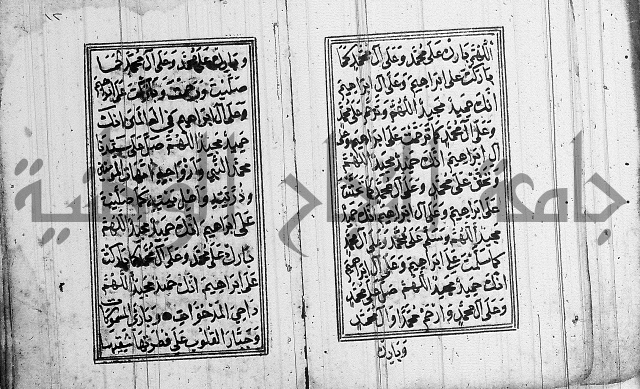 اللهم بارك على محمد وعلى آل محمد كما
باركت على ابراهيم وعلى آل ابراهيم
انك حميد مجيد اللهم وترحم على محمد
وعلى آل محمد كما ترحمت على ابراهيم وعلى
آل ابراهيم انك حميد مجيد اللهم
وتحنن على محمد وعلى آل محمد كما تحننت
على ابراهيم وعلى آل ابراهيم انك حميد
مجيد اللهم وسلم على محمد وعلى آل محمد
كما سلمت على ابراهيم وعلى آل ابراهيم
انك حميد مجيد اللهم صل على محمد
وعلى آل محمد وارحم محمدا وآل محمد
وبارك
١٢
وبارك على محمد وعلى آل محمد كما
صليت ورحمت وباركت على ابراهيم
وعلى آل ابراهيم في العالمين انك
حميد مجيد اللهم صل على سيدنا
محمد النبي وازواجه امهات المؤمنين
وذريته واهل بيته كما صليت
على ابراهيم انك حميد مجيد اللهم
بارك على محمد وعلى آل محمد كما باركت
على ابراهيم انك حميد مجيد اللهم
داحي المدحوات وبارئ المسموكات
وجبار القلوب على فطرتها شقيها
جامعة النجاح الوطنية